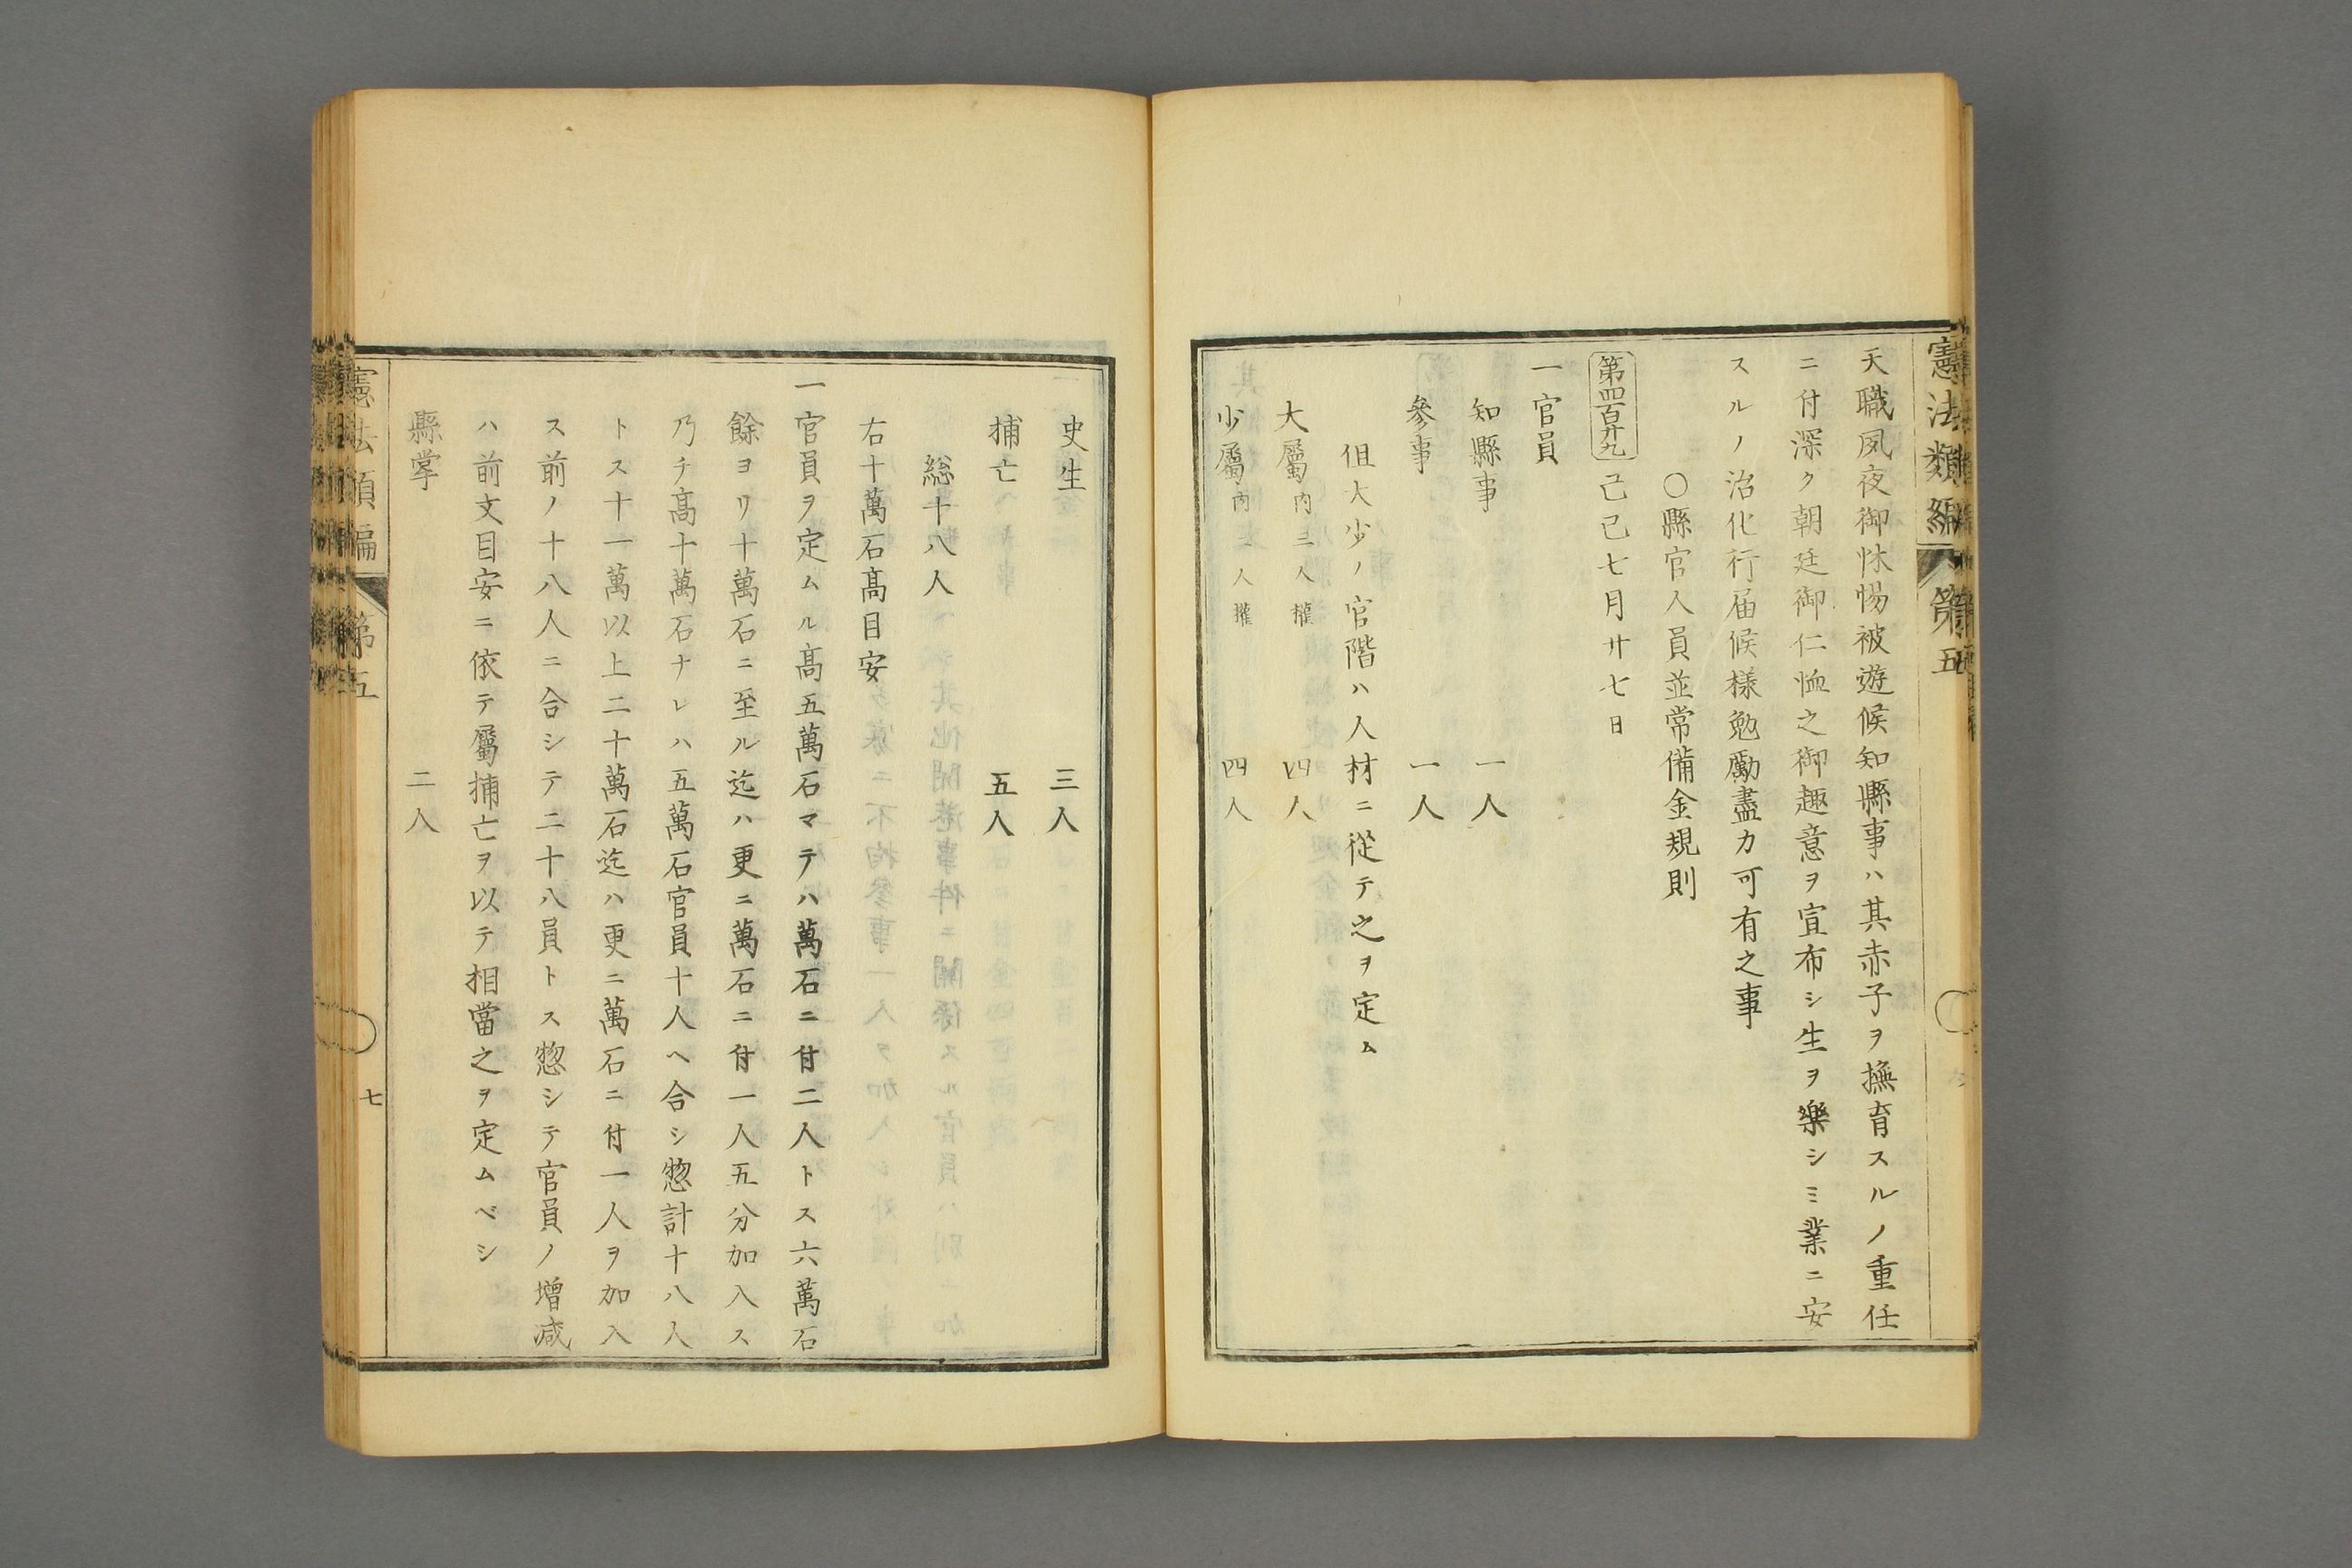 憲法類編 第五
天職夙夜御怵惕被遊候知縣事ハ其赤子ヲ撫育スルノ重任
ニ付深ク朝廷御仁恤之御趣意ヲ宣布シ生ヲ樂シミ業ニ安
スルノ治化行届候様勉勵盡力可有之事
〇縣官人員並常備金規則
第四百廿九 己巳七月廿七日
一官員
知縣事 一人
參事 一人
伹大少ノ官階ハ人材ニ從テ之ヲ定ム
大屬内三人權 四人
少屬内三人權 四人
史生 三人
捕亡 五人
総十八人
右十萬石髙目安
一官員ヲ定ムル髙五萬石マテハ萬石ニ付二人トス六萬石
餘ヨリ十萬石ニ至ル迄ハ更ニ萬石ニ付一人五分加入ス
乃チ髙十萬石ナレハ五萬石官員十人ヘ合シ惣計十八人
トス十一萬以上二十萬石迄ハ更ニ萬石ニ付一人ヲ加入
ス前ノ十八人ニ合シテ二十八員トス惣シテ官員ノ增减
ハ前文目安ニ依テ屬捕亡ヲ以テ相當之ヲ定ムベシ
縣掌 二人
憲法類編 第五 七